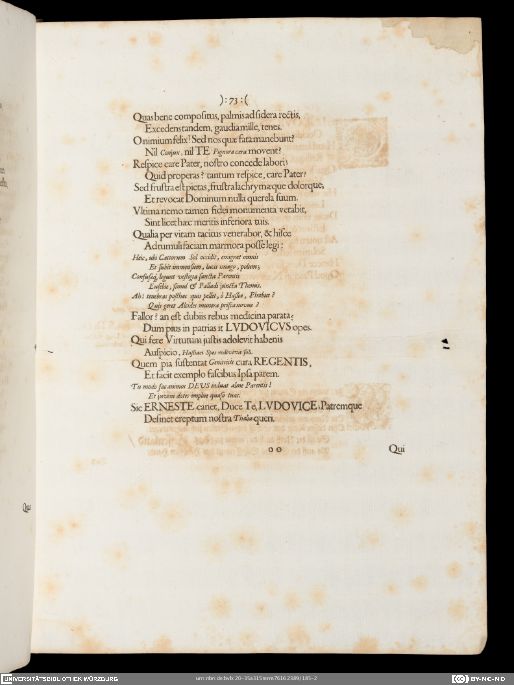 ):73:(
Quas bene compositus, palmis ad sidera rectis,
Excedens tandem, gaudia mille, tenes.
O nimium felix! Sed nos quæ fata manebunt?
Nil Conjux, nil TE Pignora cara movent?
Respice care Pater, nostro concede labori:
Quid properas? tantum respice, care Pater!
Sed frustra est pietas, frustra lachrymæque dolorque,
Et revocat Dominum nulla querela suum.
Vltima nemo tamen fidei monumenta vetabit,
Sint licet hæc meritis inferiora tuis.
Qualia per vitam tacitus venerabor, & hisce
Ad tumuli faciam marmora posse legi:
Heic, ubi Cattorum Sol occidit, exigent omnis
Et subit immensum, lucis imago, polum;
Confususq; legunt vestigia sancta Parentis
Eusebie, simul & Palladi juncta Themis.
Ah! tenebras posthac quis pellet, ô Hassia, Phœbus?
Quis geret Alcides munera prisca novus?
Fallor? an est dubiis rebus medicina parata?
Dum pius in patrias it LVDOVICVS opes.
Qui fere Virtutum justis adolevit habenis
Auspicio, Hassiaci Spes rediviva soli.
Quem pia sustentat Genetricis cura REGENTIS,
Et facit exemplo fascibus Ipsa parem.
Tu modo fac animos DEUS induat alme Parentis!
Et patrem dotes impleat quoque tuas.
Sic ERNESTE canet, Duce Te, LVDOVICE, Patremque
Desinet ereptum nostra Thalia queri.
oo
Qui
UNIVERSITÄTSBIBLIOTHEK WÜRZBURG
CC BY-NC-ND